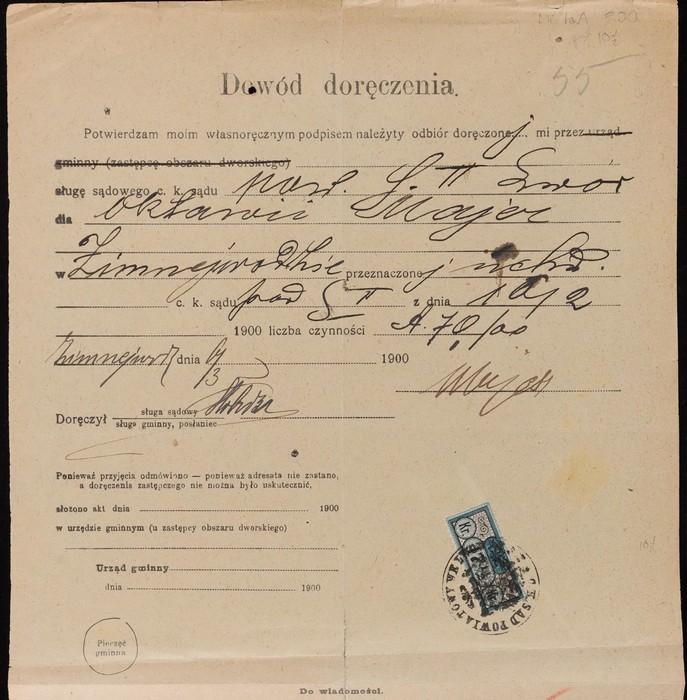 55
Dowód doręczenia.
Potwierdzam moim własnoręcznym podpisem należyty odbiór doręczonej mi przez urząd
gminny (zastępcę obszaru dworskiego)
sługę sądowego c. k. sądu pow. S. II Lwów
dla Oktawii Majer
w Zimnejwodzie przeznaczonej uchw.
c. k. sądu pow S II z dnia 10/2
1900 liczba czynności A. 70/00
Zimnejwod dnia 9/3 1900
Majer
Doręczył sługa sądowy
sługa gminny, posłaniec
Ponieważ przyjęcia odmówiono — ponieważ adresata nie zastano,
a doręczenia zastępczego nie można było uskutecznić,
złożono akt dnia 1900
w urzędzie gminnym (u zastępcy obszaru dworskiego)
Urząd gminny
dnia 1900
Kr.
C.K. SĄD POWIATOWY
Pieczęć
gminna
Do wiadomości.